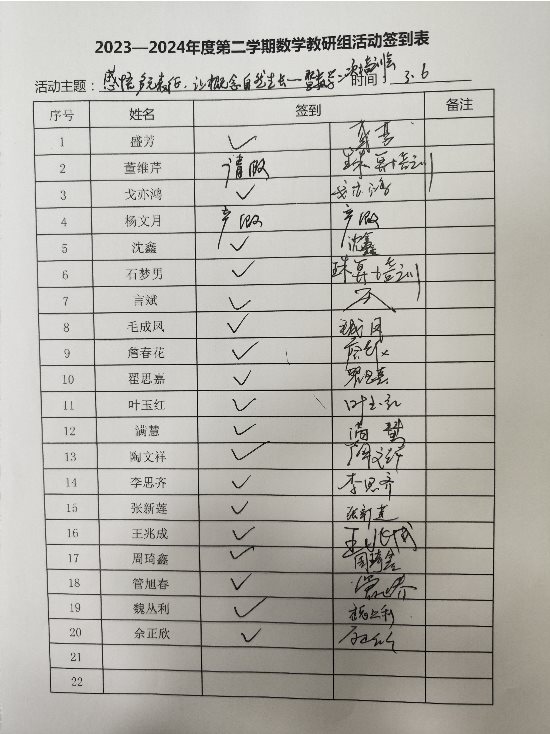 2023—2024年度第二学期数学教研组活动签到表
活动主题：感悟多元表征，让概念自然生长 时间：3.6
序号 姓名 签到 备注
1 盛芳 ✓ 盛芳
2 董维芹 请假 珠算培训
3 戈亦鸿 ✓ 戈亦鸿
4 杨文月 产假 产假
5 沈鑫 ✓ 沈鑫
6 石梦男 ✓ 珠算培训
7 言斌 ✓
8 毛成凤 ✓
9 詹春花 ✓
10 翟思嘉 ✓ 翟思嘉
11 叶玉红 ✓ 叶玉红
12 满慧 ✓ 满慧
13 陶文祥 ✓ 陶文祥
14 李思齐 ✓ 李思齐
15 张新莲 ✓ 张新莲
16 王兆成 ✓ 王兆成
17 周琦鑫 ✓ 周琦鑫
18 管旭春 ✓
19 魏从利 ✓ 魏从利
20 余正欣 ✓
21
22